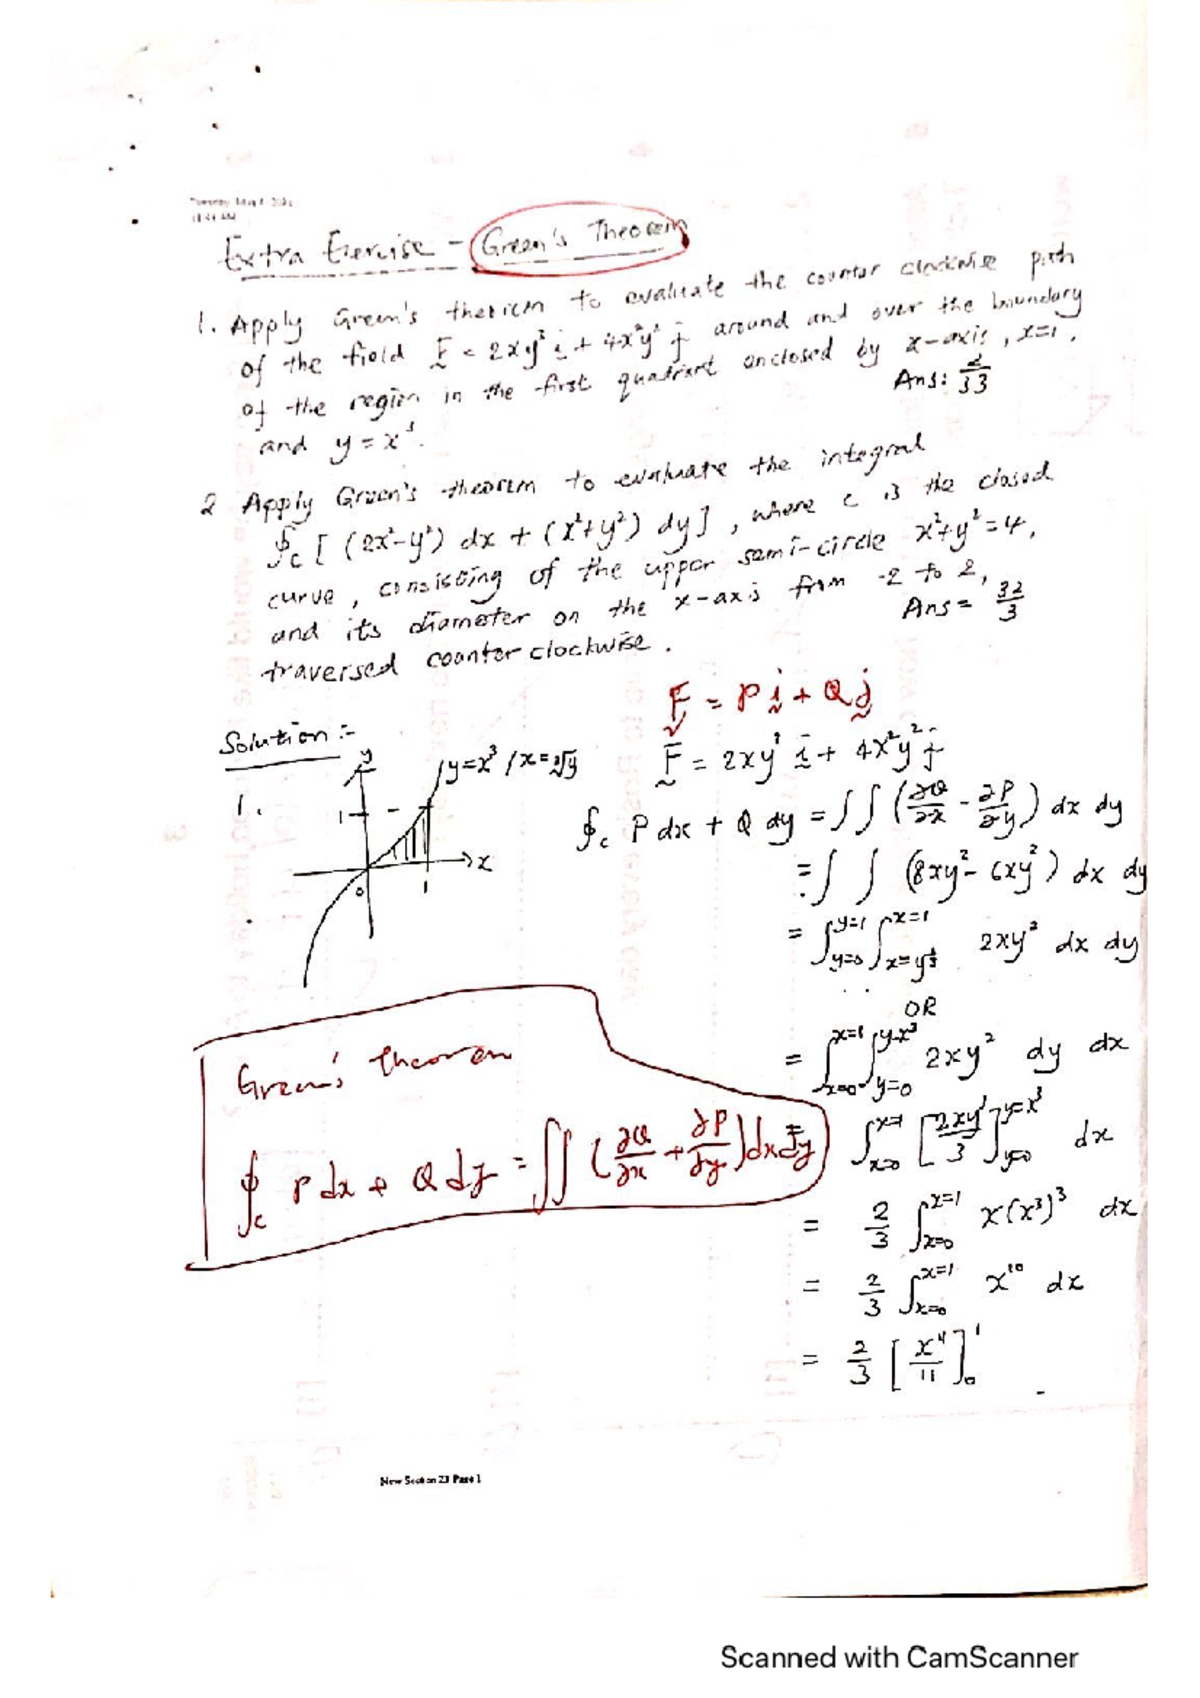 Extra Exercise - Green's Theorem
1. Apply Green's theorem to evaluate the counter clockwise path
of the field F = 2xy³ i + 4x²y² j around and over the boundary
of the region in the first quadrant enclosed by x-axis, x=1,
and y = x³. Ans: 2/33
2 Apply Green's theorem to evaluate the integral
∮c [ (2x²-y²) dx + (x²+y²) dy ], where c is the closed
curve, consisting of the upper semi-circle x²+y²=4,
and its diameter on the x-axis from -2 to 2,
traversed counter clockwise. Ans = 32/3
F = P i + Q j
Solution :-
F = 2xy³ i + 4x²y² j
1.
y
y=x³ / x=∛y
1
x
0
1
∮c P dx + Q dy = ∫∫ (∂Q/∂x - ∂P/∂y) dx dy
= ∫ ∫ (8xy² - 6xy²) dx dy
= ∫y=0^y=1 ∫x=y^⅓^x=1 2xy² dx dy
OR
= ∫x=0^x=1 ∫y=0^y=x³ 2xy² dy dx
= ∫x=0^x=1 [2xy³/3]y=0^y=x³ dx
= 2/3 ∫x=0^x=1 x(x³)³ dx
= 2/3 ∫x=0^x=1 x¹⁰ dx
= 2/3 [x¹¹/11]₀¹
Green's Theorem
∮c P dx + Q dy = ∫∫ (∂Q/∂x + ∂P/∂y) dx dy
New Section 23 Page 1
Scanned with CamScanner